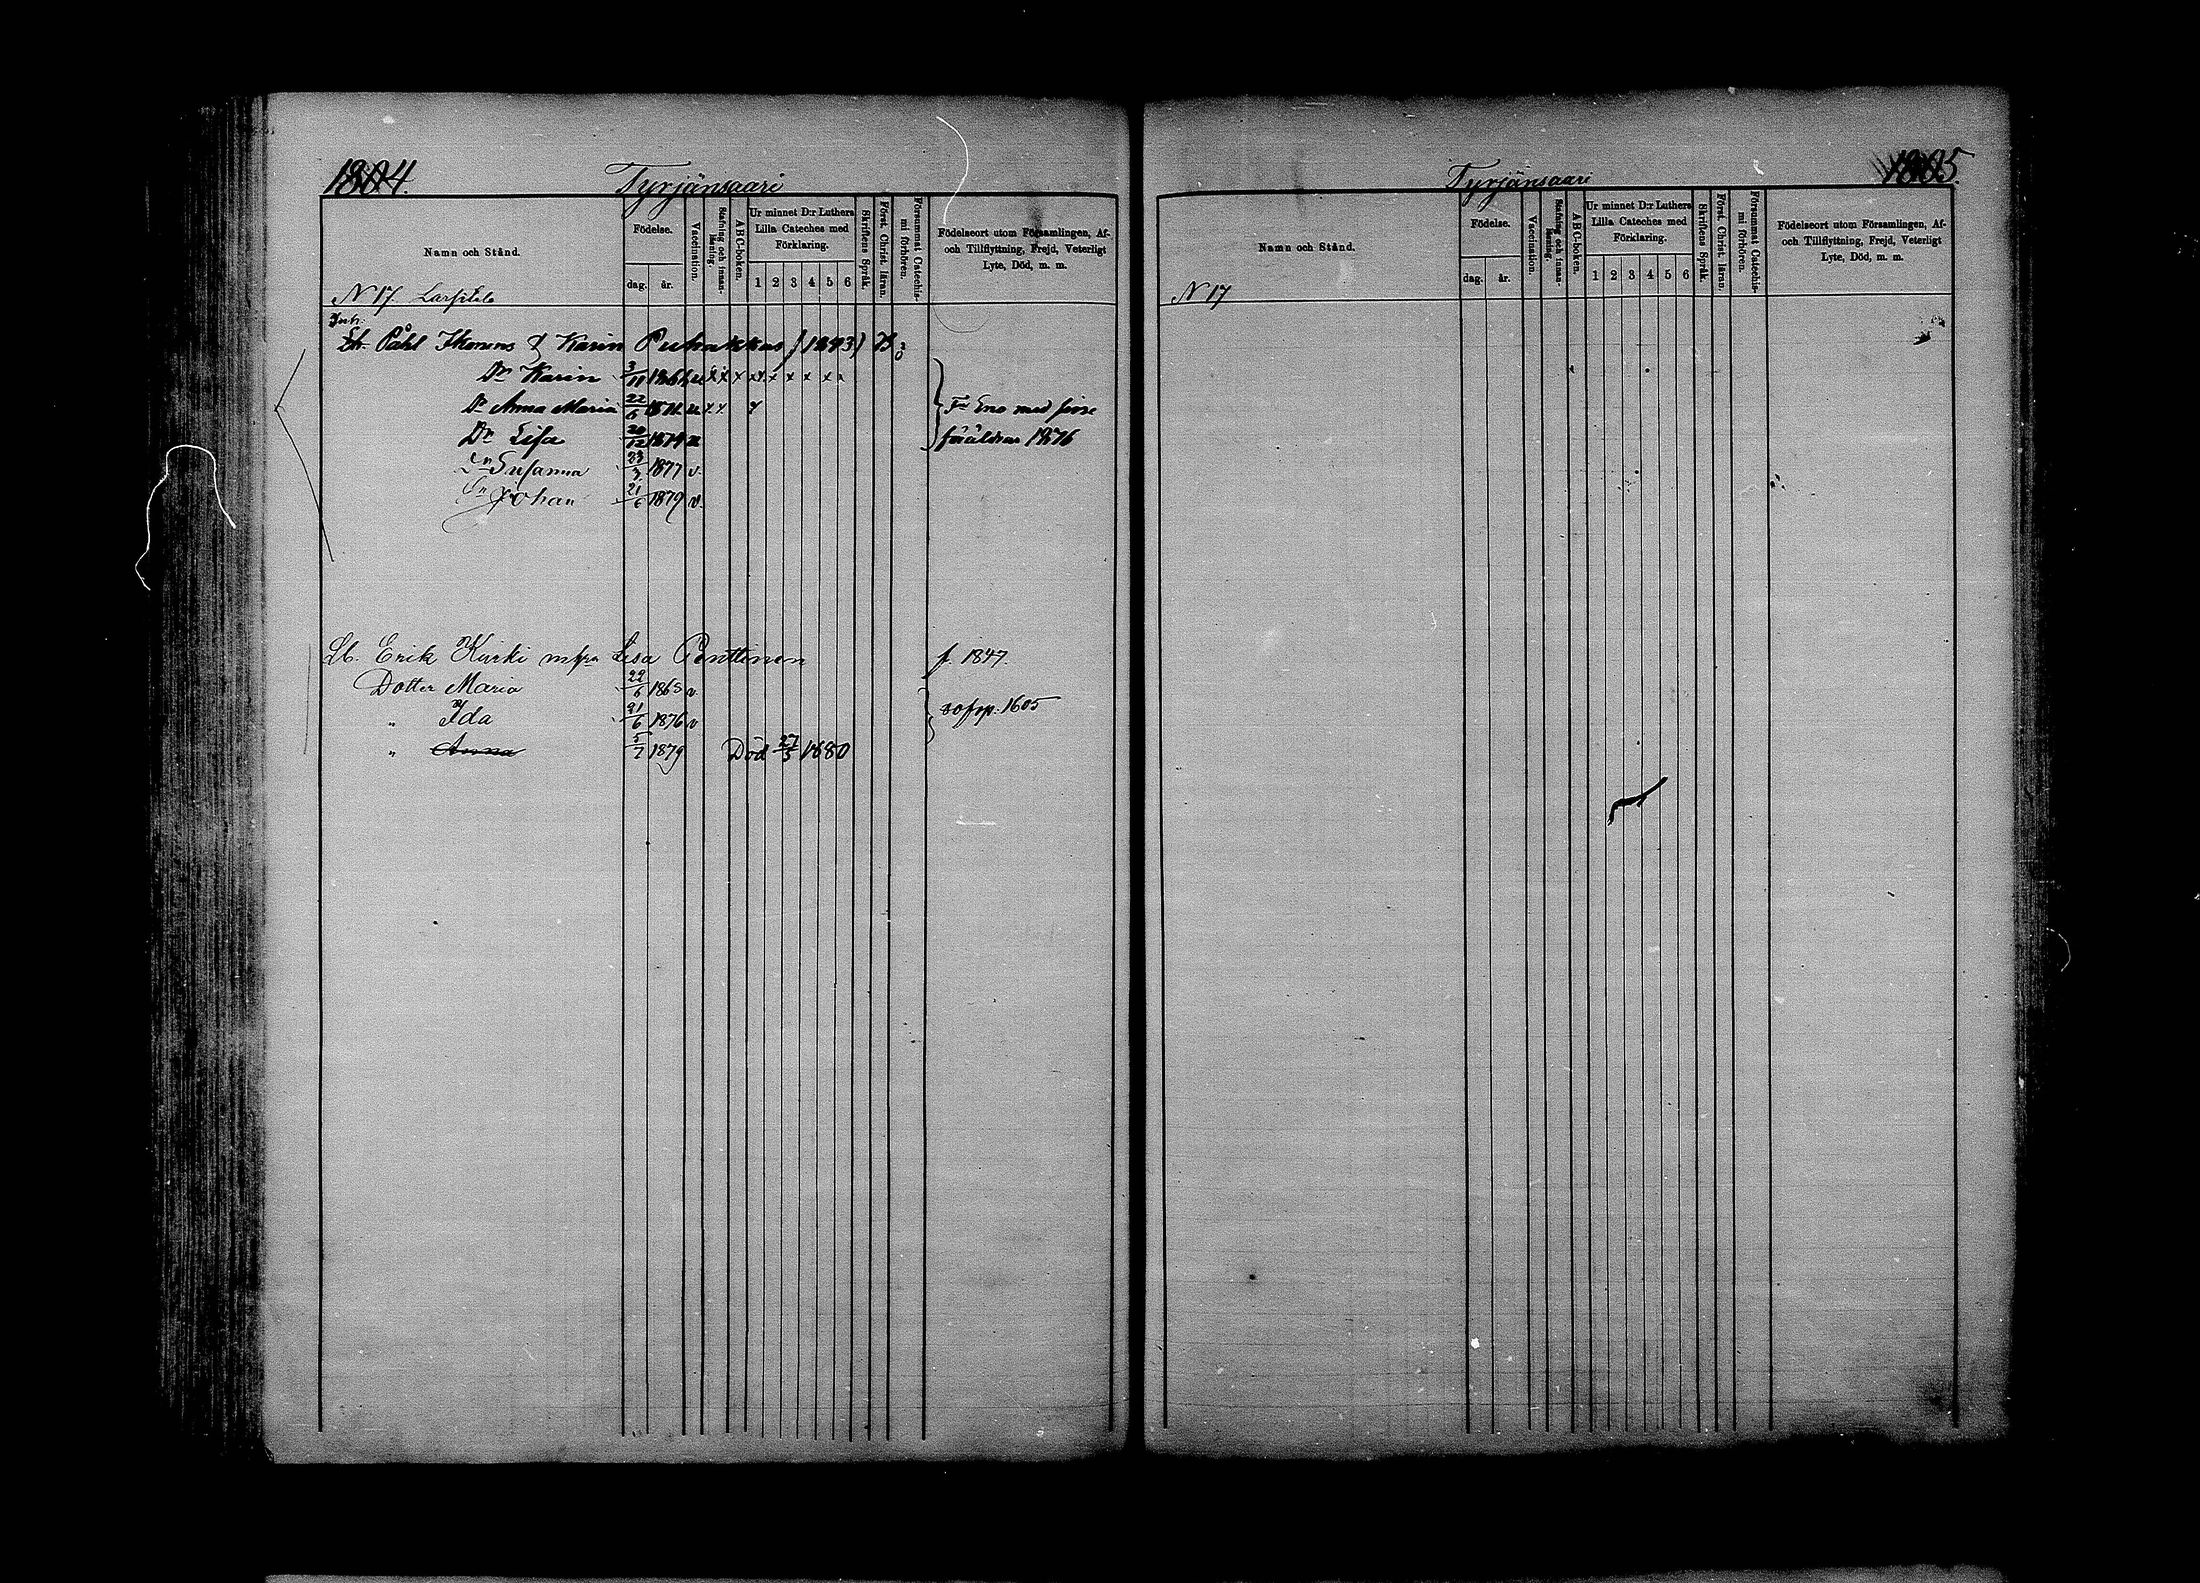 1804.
Tyrjänsaari
Namn och Stånd.
Födelse.
dag. år.
Vaccination.
Stafning och innan-läsning.
ABC-boken.
Ur minnet D:r Luthers Lilla Cateches med Förklaring.
1 2 3 4 5 6
Skriftens Språk.
Först. Christ. läran.
Försummat Catechis-mi förhören.
Födelseort utom Församlingen, Af- och Tillflyttning, Frejd, Veterligt Lyte, Död, m. m.
N 17
Inh.
Påhl Ikonens & Karin Puhakkas (1843)
Dr Karin 3/11
Dr Anna Maria 22/6 u x x
Fr Eno med sine
Dr Lisa 20/12 1874 u
föräldrar 1876
Dr Susanna 23/3 1877 v.
Sn Johan 21/6 1879 v.
Lb. Erik Kurki Lisa Penttinen f. 1847.
Dotter Maria 22/6 1865 v.
" Ida 21/6 1876 v
1605
" Anna 5/7 1879 Död 27/5 1880
Tyrjänsaari
1805.
Namn och Stånd.
Födelse.
dag. år.
Vaccination.
Stafning och innan-läsning.
ABC-boken.
Ur minnet D:r Luthers Lilla Cateches med Förklaring.
1 2 3 4 5 6
Skriftens Språk.
Först. Christ. läran.
Försummat Catechis-mi förhören.
Födelseort utom Församlingen, Af- och Tillflyttning, Frejd, Veterligt Lyte, Död, m. m.
N 17